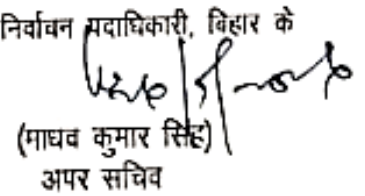 निर्वाचन पदाधिकारी, बिहार के
(माधव कुमार सिंह)
अपर सचिव